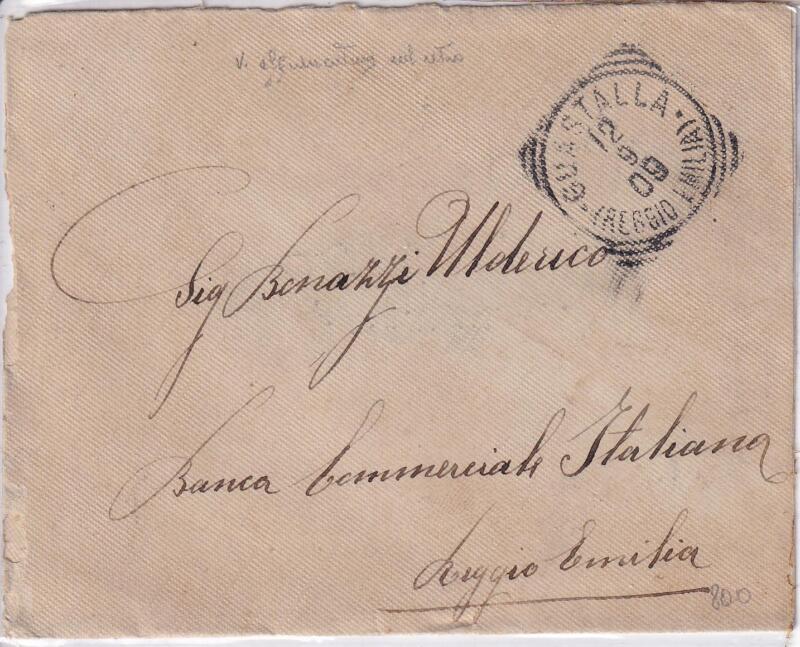 v. affrancatura sul retro
GUASTALLA
(REGGIO EMILIA)
12
9
09
Sig Bonazzi Ulderico
Banca Commerciale Italiana
Reggio Emilia
800